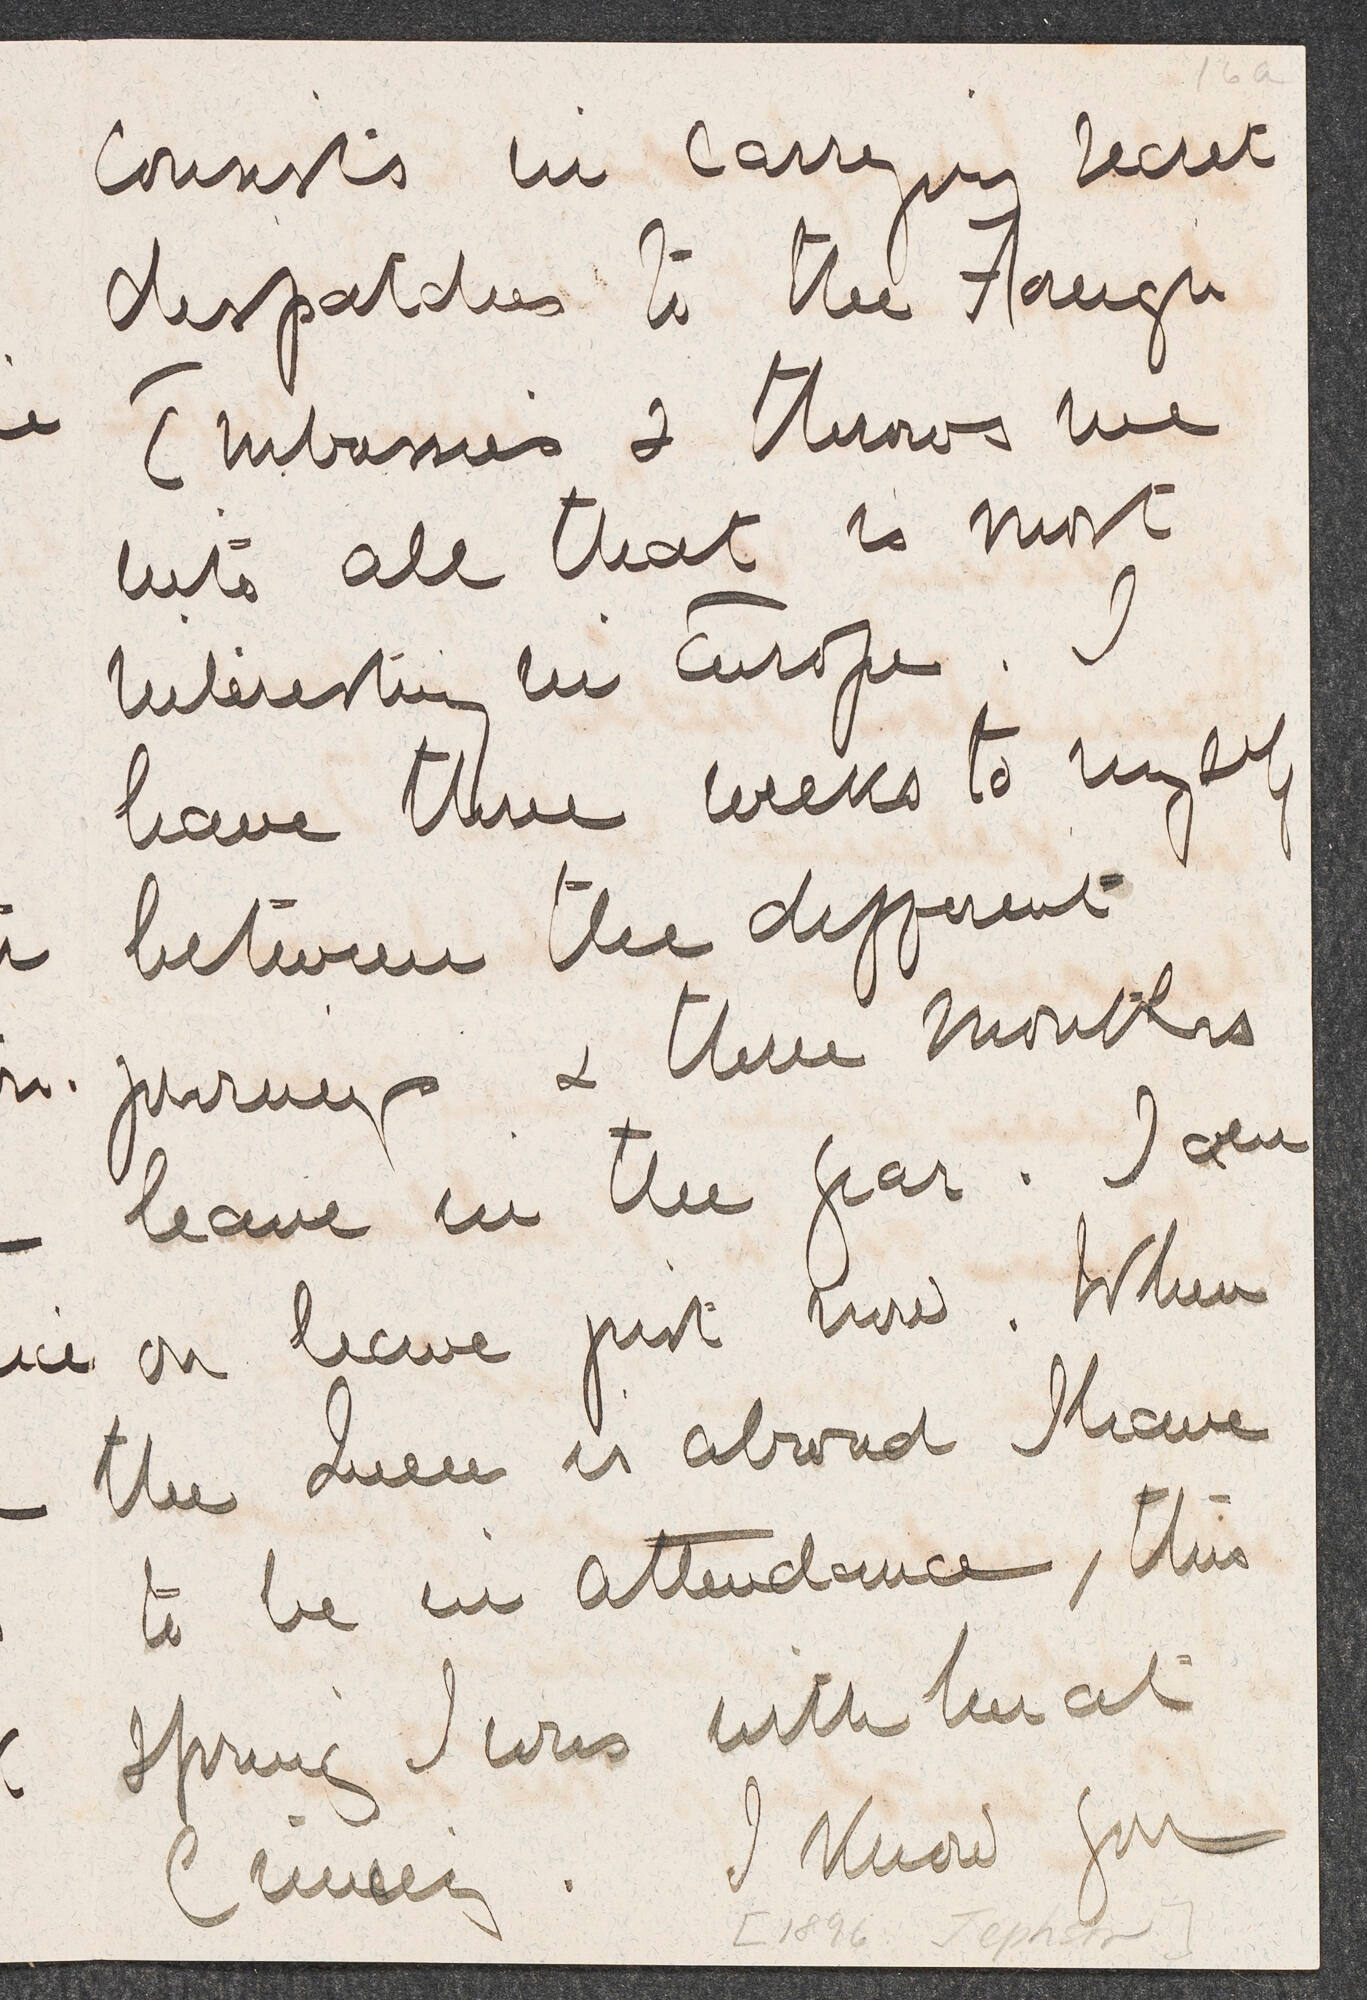 16a
consists in carrying secret
despatches to the Foreign
Embassies & throws me
into all that is most
interesting in Europe. I
have three weeks to myself
between the different
journeys & three months
leave in the year. I am
on leave just now. When
the Queen is abroad I have
to be in attendance, this
spring I was with her at
Cimiez. I know you
[1896 Jephson]